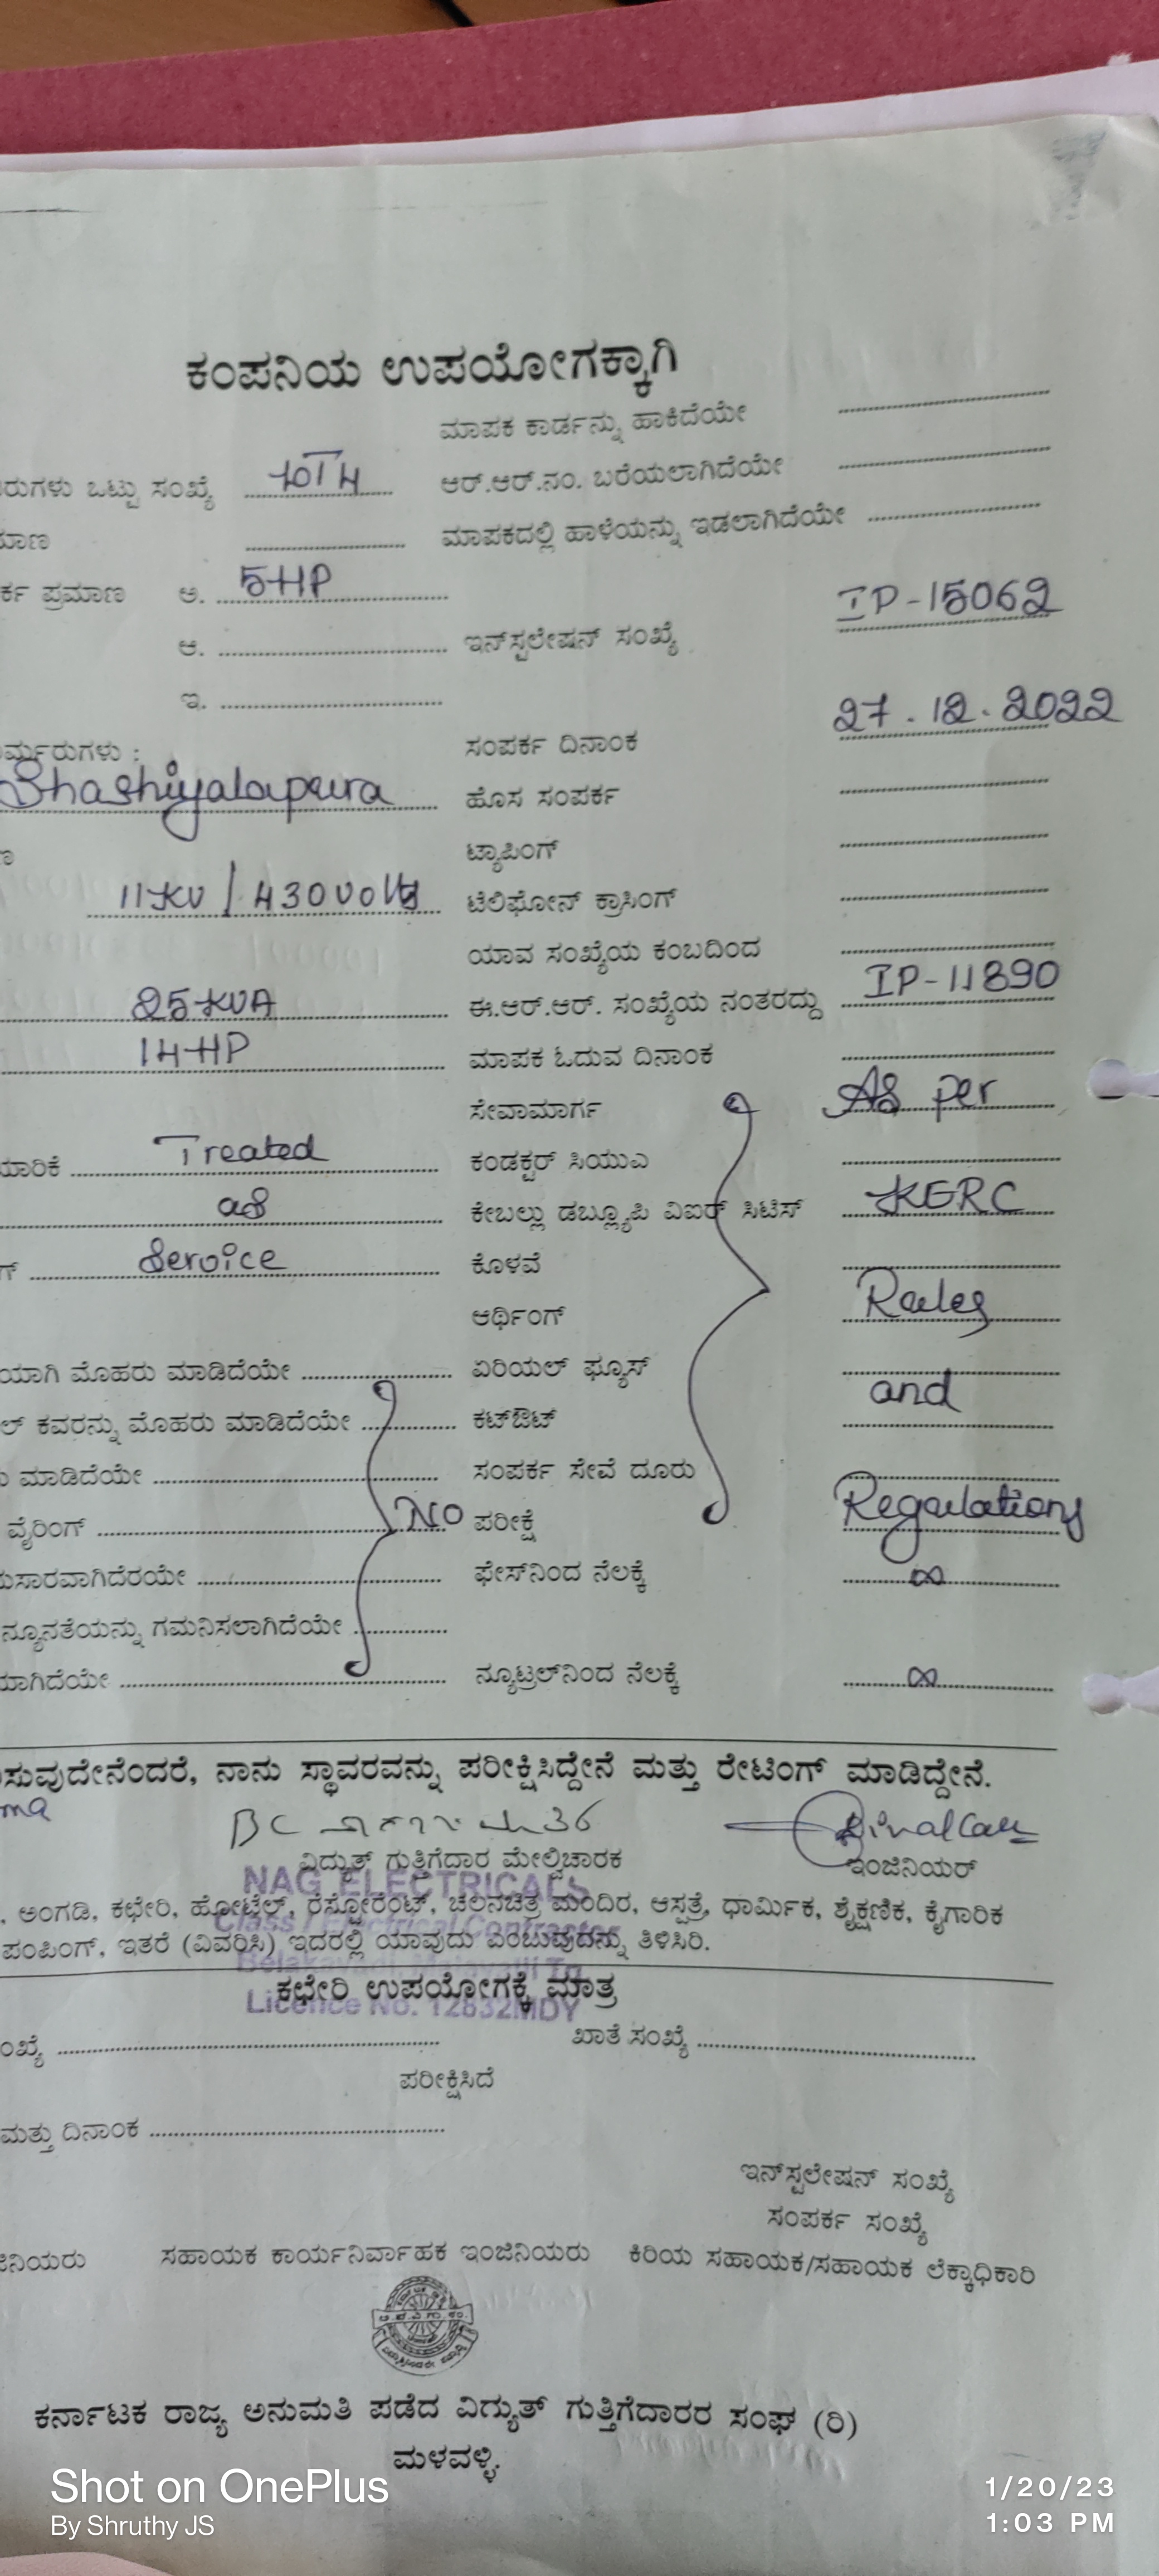 ಕಂಪನಿಯ ಉಪಯೋಗಕ್ಕಾಗಿ
ಮಾಪಕ ಕಾರ್ಡನ್ನು ಹಾಕಿದೆಯೇ
ರುಗಳು ಒಟ್ಟು ಸಂಖ್ಯೆ ಆರ್.ಆರ್.ನಂ. ಬರೆಯಲಾಗಿದೆಯೇ
ಮಾಣ ಮಾಪಕದಲ್ಲಿ ಹಾಳೆಯನ್ನು ಇಡಲಾಗಿದೆಯೇ
ರ್ಕ ಪ್ರಮಾಣ ಅ. 5HP
ಆ. ಇನ್‌ಸ್ಟಲೇಷನ್ ಸಂಖ್ಯೆ IP-15062
ಇ.
ರ್ಮರುಗಳು : ಸಂಪರ್ಕ ದಿನಾಂಕ 27.12.2022
Shashiyalapura ಹೊಸ ಸಂಪರ್ಕ
ಟ್ಯಾಪಿಂಗ್
11KV / 430 volts ಟೆಲಿಫೋನ್ ಕ್ರಾಸಿಂಗ್
ಯಾವ ಸಂಖ್ಯೆಯ ಕಂಬದಿಂದ
25KVA ಈ.ಆರ್.ಆರ್. ಸಂಖ್ಯೆಯ ನಂತರದ್ದು IP-11890
14HP ಮಾಪಕ ಓದುವ ದಿನಾಂಕ
ಸೇವಾಮಾರ್ಗ As per
ಮಾರಿಕೆ Treated ಕಂಡಕ್ಟರ್ ಸಿಯುಎ
as ಕೇಬಲ್ಲು ಡಬ್ಲ್ಯೂಪಿ ವಿಐರ್ ಸಿಟಿಸ್ KERC
ಗ್ Service ಕೊಳವೆ
ಆರ್ಥಿಂಗ್ Rules
ಯಾಗಿ ಮೊಹರು ಮಾಡಿದೆಯೇ ಏರಿಯಲ್ ಫ್ಯೂಸ್
ಲ್ ಕವರನ್ನು ಮೊಹರು ಮಾಡಿದೆಯೇ ಕಟ್‌ಔಟ್ and
ಮಾಡಿದೆಯೇ ಸಂಪರ್ಕ ಸೇವೆ ದೂರು
ವೈರಿಂಗ್ NO ಪರೀಕ್ಷೆ Regulations
ನುಸಾರವಾಗಿದೆರಯೇ ಫೇಸ್‌ನಿಂದ ನೆಲಕ್ಕೆ ∞
ನ್ಯೂನತೆಯನ್ನು ಗಮನಿಸಲಾಗಿದೆಯೇ
ಮಾಗಿದೆಯೇ ನ್ಯೂಟ್ರಲ್‌ನಿಂದ ನೆಲಕ್ಕೆ ∞
ಸುವುದೇನೆಂದರೆ, ನಾನು ಸ್ಥಾವರವನ್ನು ಪರೀಕ್ಷಿಸಿದ್ದೇನೆ ಮತ್ತು ರೇಟಿಂಗ್ ಮಾಡಿದ್ದೇನೆ.
ma
ವಿದ್ಯುತ್ ಗುತ್ತಿಗೆದಾರ ಮೇಲ್ವಿಚಾರಕ ಇಂಜಿನಿಯರ್
NAG ELECTRICALS
, ಅಂಗಡಿ, ಕಛೇರಿ, ಹೋಟ್ಲೆಲ್, ರೆಸ್ಟೋರೆಂಟ್, ಚಲನಚಿತ್ರ ಮಂದಿರ, ಆಸ್ಪತ್ರೆ, ಧಾರ್ಮಿಕ, ಶೈಕ್ಷಣಿಕ, ಕೈಗಾರಿಕ
Class I Electrical Contractor
ಪಂಪಿಂಗ್, ಇತರೆ (ವಿವರಿಸಿ) ಇದರಲ್ಲಿ ಯಾವುದು ಎಂಬುವುದನ್ನು ತಿಳಿಸಿರಿ.
ಕಛೇರಿ ಉಪಯೋಗಕ್ಕೆ ಮಾತ್ರ
Licence No. 12832MDY
ಂಖ್ಯೆ ಖಾತೆ ಸಂಖ್ಯೆ
ಪರೀಕ್ಷಿಸಿದೆ
ಮತ್ತು ದಿನಾಂಕ
ಇನ್‌ಸ್ಟಲೇಷನ್ ಸಂಖ್ಯೆ
ಸಂಪರ್ಕ ಸಂಖ್ಯೆ
ಜಿನಿಯರು ಸಹಾಯಕ ಕಾರ್ಯನಿರ್ವಾಹಕ ಇಂಜಿನಿಯರು ಕಿರಿಯ ಸಹಾಯಕ/ಸಹಾಯಕ ಲೆಕ್ಕಾಧಿಕಾರಿ
ಕರ್ನಾಟಕ ರಾಜ್ಯ ಅನುಮತಿ ಪಡೆದ ವಿದ್ಯುತ್ ಗುತ್ತಿಗೆದಾರರ ಸಂಘ (ರಿ)
ಮಳವಳ್ಳಿ.
Shot on OnePlus
By Shruthy JS
1/20/23
1:03 PM